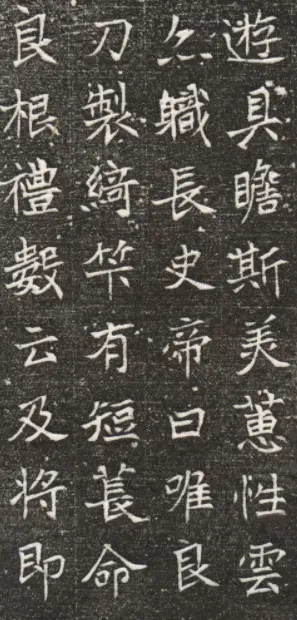 遊具瞻斯美蕙性雲
職長史帝曰唯良
刀製綺笇有短萇命
良根禮數云及將即